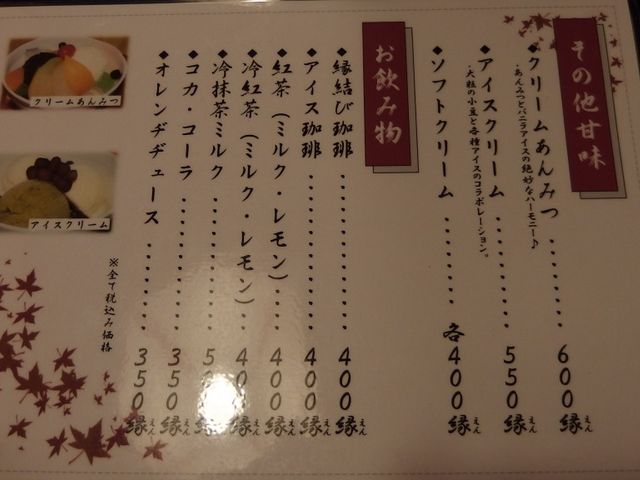 その他甘味
◆クリームあんみつ‥‥‥‥600縁
えん
・あんみつとバニラアイスの絶妙なハーモニー♪
◆アイスクリーム‥‥‥‥550縁
えん
・大粒の小豆と各種アイスのコラボレーション。
◆ソフトクリーム‥‥‥‥各400縁
えん
お飲み物
◆縁結び珈琲‥‥‥‥400縁
えん
◆アイス珈琲‥‥‥‥400縁
えん
◆紅茶（ミルク・レモン）‥‥400縁
えん
◆冷紅茶（ミルク・レモン）‥‥400縁
えん
◆冷抹茶ミルク‥‥‥‥500縁
えん
◆コカ・コーラ‥‥‥‥350縁
えん
◆オレンヂヂュース‥‥‥‥350縁
えん
※全て税込み価格
クリームあんみつ
アイスクリーム